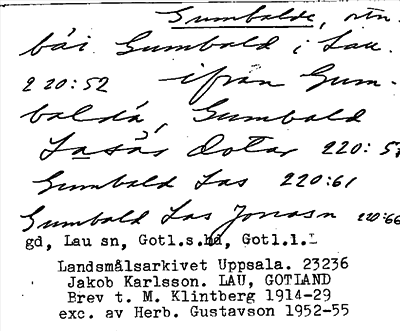 Gumbalde, ortn.
båi Gumbald i Lau.
2 20:52 ifrån Gum-
baldå, Gumbald
Lasås Dotar 220:5
Gumbald Las 220:61
Gumbald Las Jonasn 220:66
gd, Lau sn, Gotl.s.hd, Gotl.l.
Landsmålsarkivet Uppsala. 23236
Jakob Karlsson. LAU, GOTLAND
Brev t. M. Klintberg 1914-29
exc. av Herb. Gustavson 1952-55